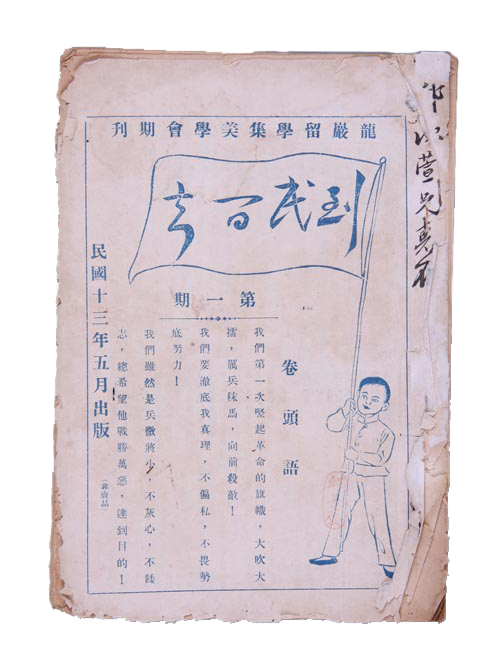 龍嚴留學集美學會期刊
到民間去
第一期
卷頭語
我們第一次竪起革命的旗幟，大吹大
擂，厲兵秣馬，向前殺敵！
我們要澈底我真理，不偏私，不畏勢
底努力！
我們雖然是兵微將少，不灰心，不餒
志，總希望他戰勝萬惡，達到目的！
民國十三年五月出版
（非賣品）
萱兄